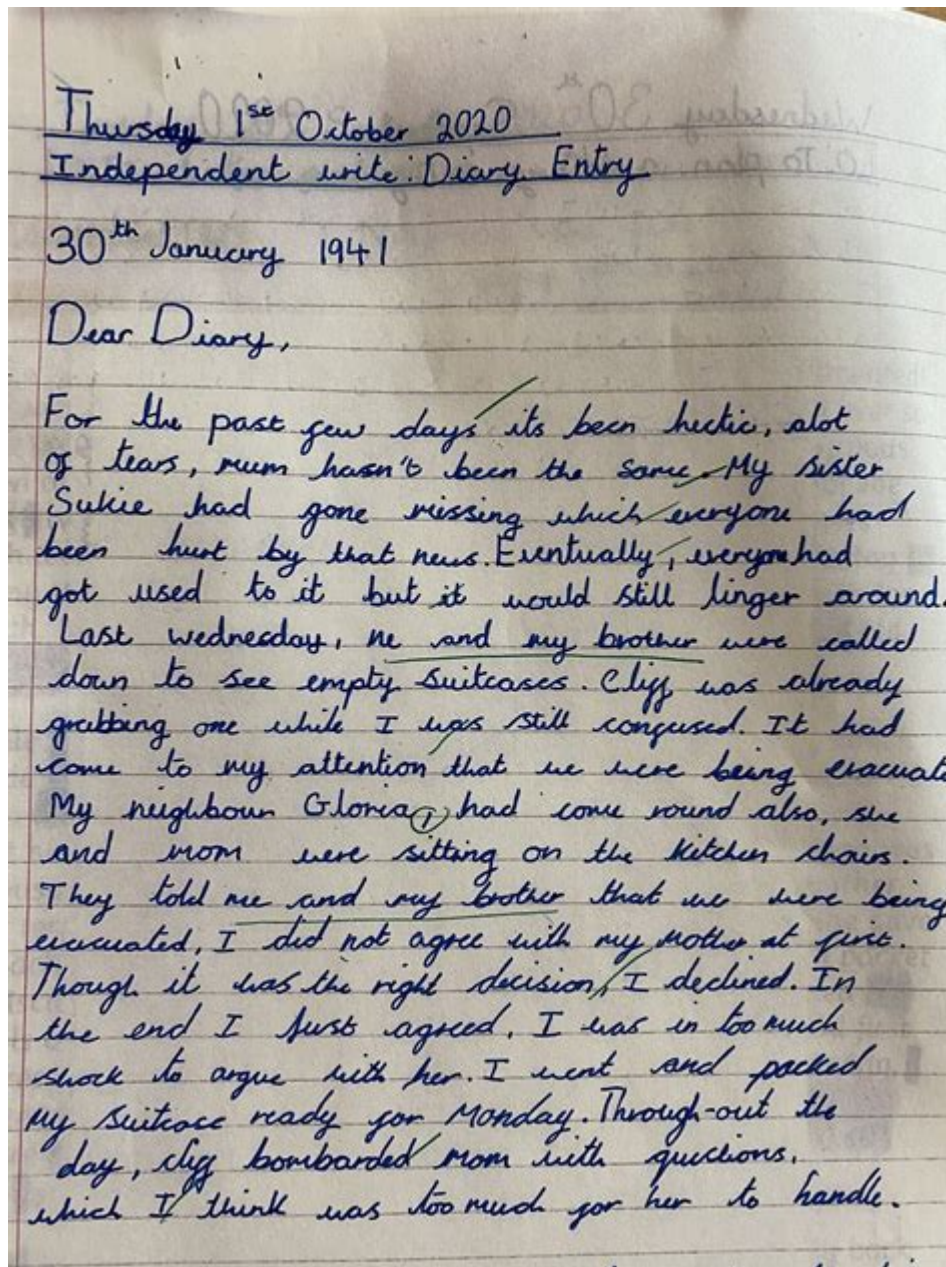 Thursday 1st October 2020
Independent write: Diary Entry
30th January 1941
Dear Diary,
For the past few days its been hectic, alot
of tears, mum hasn't been the same. My sister
Sukie had gone missing which everyone had
been hurt by that news. Eventually, everyone had
got used to it but it would still linger around.
Last wednesday, me and my brother were called
down to see empty suitcases. Cliff was already
grabbing one while I was still confused. It had
come to my attention that we were being evacuat
My neighbour Gloria, had come round also, she
and mom were sitting on the kitchen chairs.
They told me and my brother that we were being
evacuated. I did not agree with my mother at first.
Though it was the right decision, I declined. In
the end I just agreed. I was in too much
shock to argue with her. I went and packed
my suitcase ready for Monday. Through-out the
day, cliff bombarded mom with questions.
which I think was too much for her to handle.